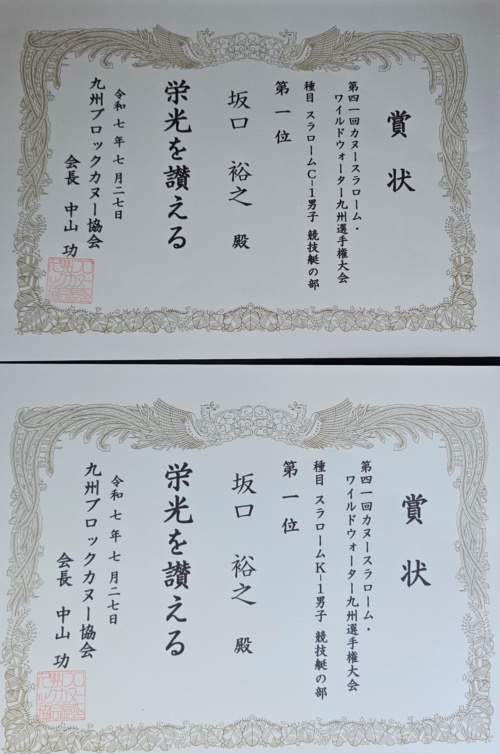 賞状
第四一回カヌースラローム・
ワイルドウォーター九州選手権大会
種目 スラロームC-1男子 競技艇の部
第一位
坂口 裕之 殿
栄光を讃える
令和七年七月二七日
九州ブロックカヌー協会
会長 中山 功
賞状
第四一回カヌースラローム・
ワイルドウォーター九州選手権大会
種目 スラロームK-1男子 競技艇の部
第一位
坂口 裕之 殿
栄光を讃える
令和七年七月二七日
九州ブロックカヌー協会
会長 中山 功